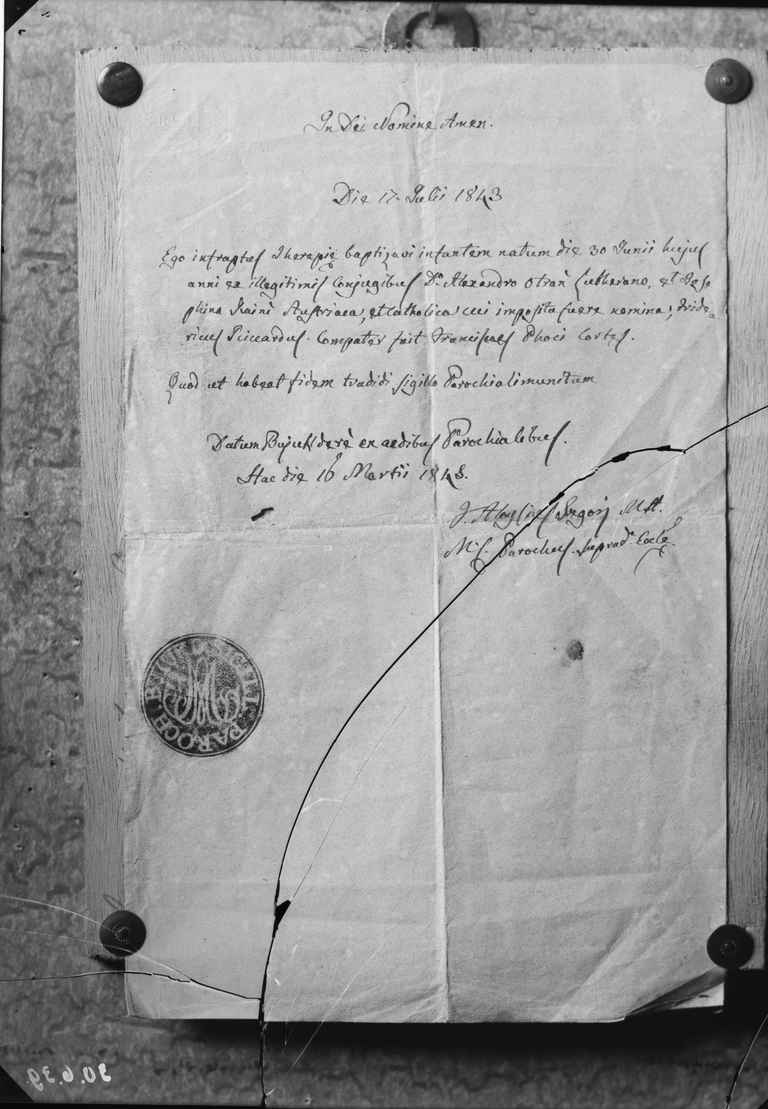 In Dei Nomine Amen.
Die 17. Julii 1843
Ego infraptus Therapię baptizavi infantem natum die 30 Junii hujus
anni ex illegitimis Conjugibus Dº Alexandro Lutherano, et Jose
phina Austriaca, et catholica cui imposita fuere nomina; Fride=
ricus Riccardus. Compater fuit Franciscus Phoci Cortes.
Quod ut habeat fidem tradidi sigillo Parochiali munitum
Datum Bujukderè ex aedibus Parochialibus.
Hac die 16 Martii 1848.
Parochus suprad. Eccle
PAROCH. B
30.6.39.